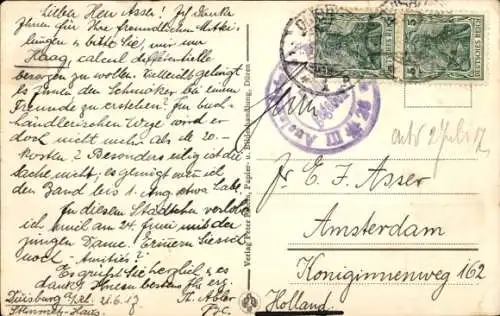 Lieber Herr Asser! Ich danke
Ihnen für Ihre freundlichen Mittei-
lungen & bitte Sie, mir nur
Haag, calcul differentielle
besorgen zu wollen. Vielleicht gelingt
es Ihnen den Schmöker bei einem
Freunde zu erstehen? Im buch-
händlerischen Wege wird er
doch nicht mehr als de 20.-
kosten? Besonders eilig ist die
Sache nicht, es genügt wenn ich
den Band bis 1. Aug. etwa habe.
In diesem Städtchen verlobte
ich mich am 24. Juni mit der
jungen Dame. Erinnern Sie sich
noch
Es grüßt Sie herzlich & es
dankt Ihnen bestens Ihr erg.
Duisburg a/Rh. 26.6.17
Verlag Peter Papier- u. Buchhandlung, Düren
DEUTSCHES REICH
DEUTSCHES REICH
5
5
2 Juli 17
Mr E. J. Asser
Amsterdam
Koniginnenweg 162
Holland.